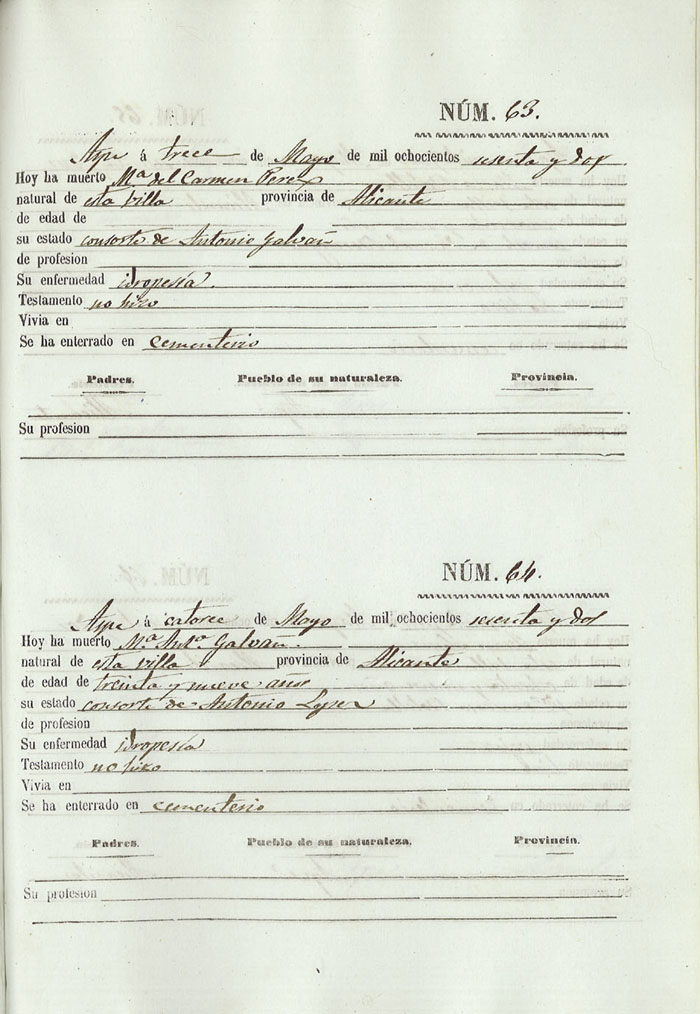 NÚM. 63.
Aspe á trece de Mayo de mil ochocientos sesenta y dos
Hoy ha muerto Mª del Carmen Perez
natural de esta villa provincia de Alicante
de edad de
su estado consorte de Antonio Galvañ
de profesion
Su enfermedad idropesía.
Testamento no hizo
Vivia en
Se ha enterrado en cementerio
Padres. Pueblo de su naturaleza. Provincia.
Su profesion
NÚM. 64.
Aspe á catorce de Mayo de mil ochocientos sesenta y dos
Hoy ha muerto Mª Antª Galvañ.
natural de esta villa provincia de Alicante
de edad de treinta y nueve años
su estado consorte de Antonio Lopez
de profesion
Su enfermedad idropesía
Testamento no hizo
Vivia en
Se ha enterrado en cementerio
Padres. Pueblo de su naturaleza. Provincia.
Su profesion